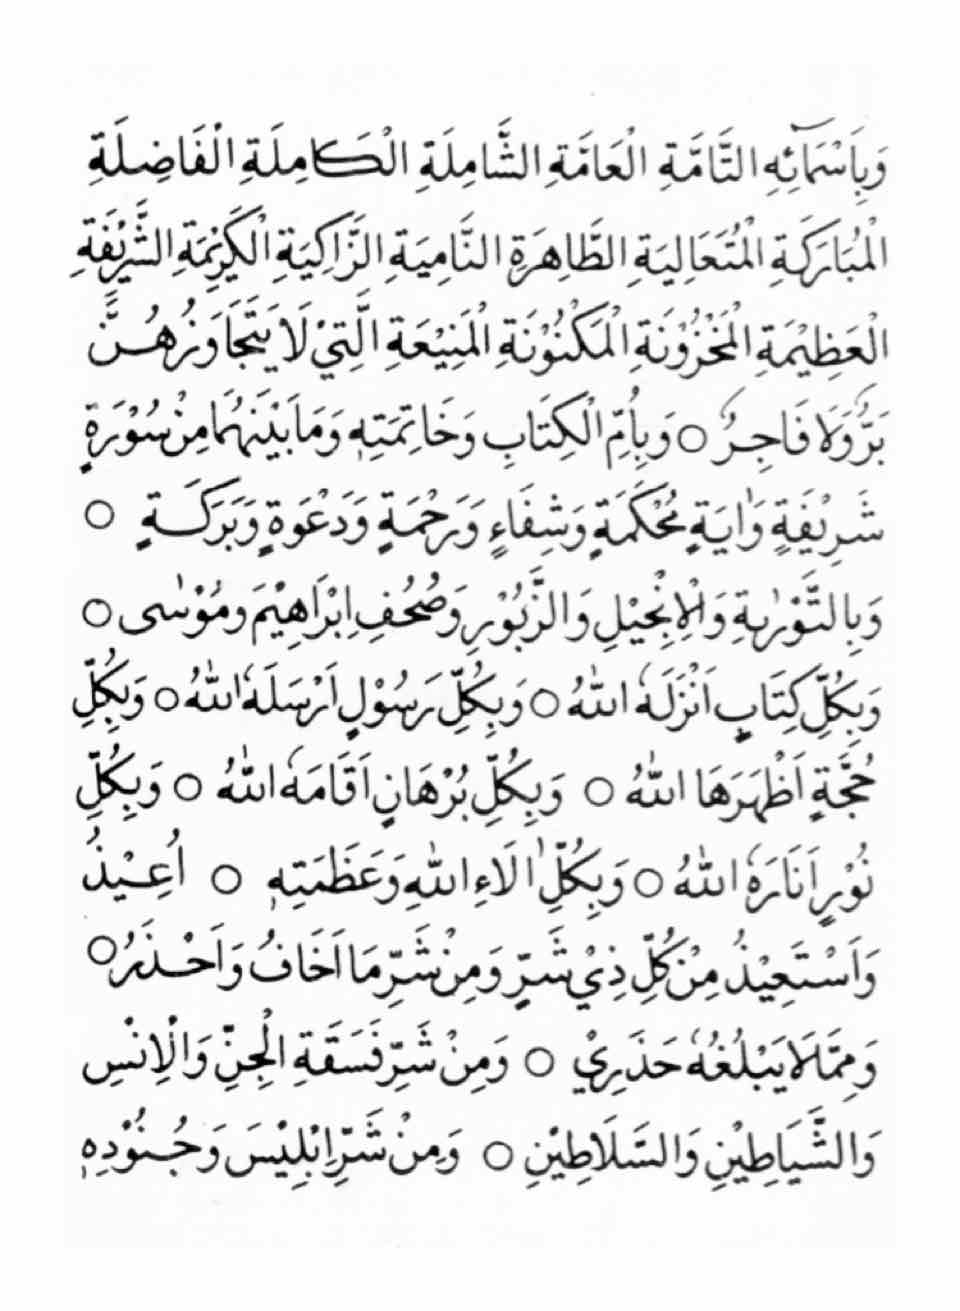 وَبِاَسْمَآئِهِ التَّامَّةِ الْعَامَّةِ الشَّامِلَةِ الْكَامِلَةِ الْفَاضِلَةِ
الْمُبَارَكَةِ الْمُتَعَالِيَةِ الطَّاهِرَةِ النَّامِيَةِ الزَّاكِيَةِ الْكَرِيْمَةِ الشَّرِيْفَةِ
الْعَظِيْمَةِ الْمَخْزُوْنَةِ الْمَكْنُوْنَةِ الْمَنِيْعَةِ الَّتِيْ لَا يَتَجَاوَزُهُنَّ
بَرٌّ وَلَا فَاجِرٌ ○ وَبِاُمِّ الْكِتَابِ وَخَاتِمَتِهٖ وَمَا بَيْنَهُمَا مِنْ سُوْرَةٍ
شَرِيْفَةٍ وَاٰيَةٍ مُحْكَمَةٍ وَشِفَاءٍ وَرَحْمَةٍ وَدَعْوَةٍ وَبَرَكَةٍ ○
وَبِالتَّوْرٰىةِ وَالْاِنْجِيْلِ وَالزَّبُوْرِ وَصُحُفِ اِبْرَاهِيْمَ وَمُوْسٰى ○
وَبِكُلِّ كِتَابٍ اَنْزَلَهُ اللّٰهُ ○ وَبِكُلِّ رَسُوْلٍ اَرْسَلَهُ اللّٰهُ ○ وَبِكُلِّ
حُجَّةٍ اَظْهَرَهَا اللّٰهُ ○ وَبِكُلِّ بُرْهَانٍ اَقَامَهُ اللّٰهُ ○ وَبِكُلِّ
نُوْرٍ اَنَارَهُ اللّٰهُ ○ وَبِكُلِّ اٰلَاءِ اللّٰهِ وَعَظَمَتِهٖ ○ اُعِيْذُ
وَاَسْتَعِيْذُ مِنْ كُلِّ ذِيْ شَرٍّ وَمِنْ شَرِّ مَا اَخَافُ وَاَحْذَرُ ○
وَمِمَّا لَا يَبْلُغُهُ حَذَرِيْ ○ وَمِنْ شَرِّ فَسَقَةِ الْجِنِّ وَالْاِنْسِ
وَالشَّيَاطِيْنِ وَالسَّلَاطِيْنِ ○ وَمِنْ شَرِّ اِبْلِيْسَ وَجُنُوْدِهٖ